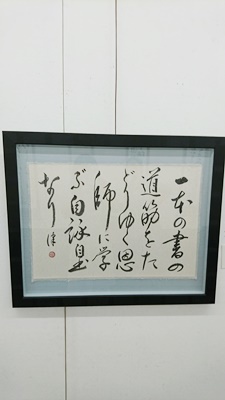 一本の書の
道筋をた
どりゆく恩
師に学
ぶ自詠自
なり